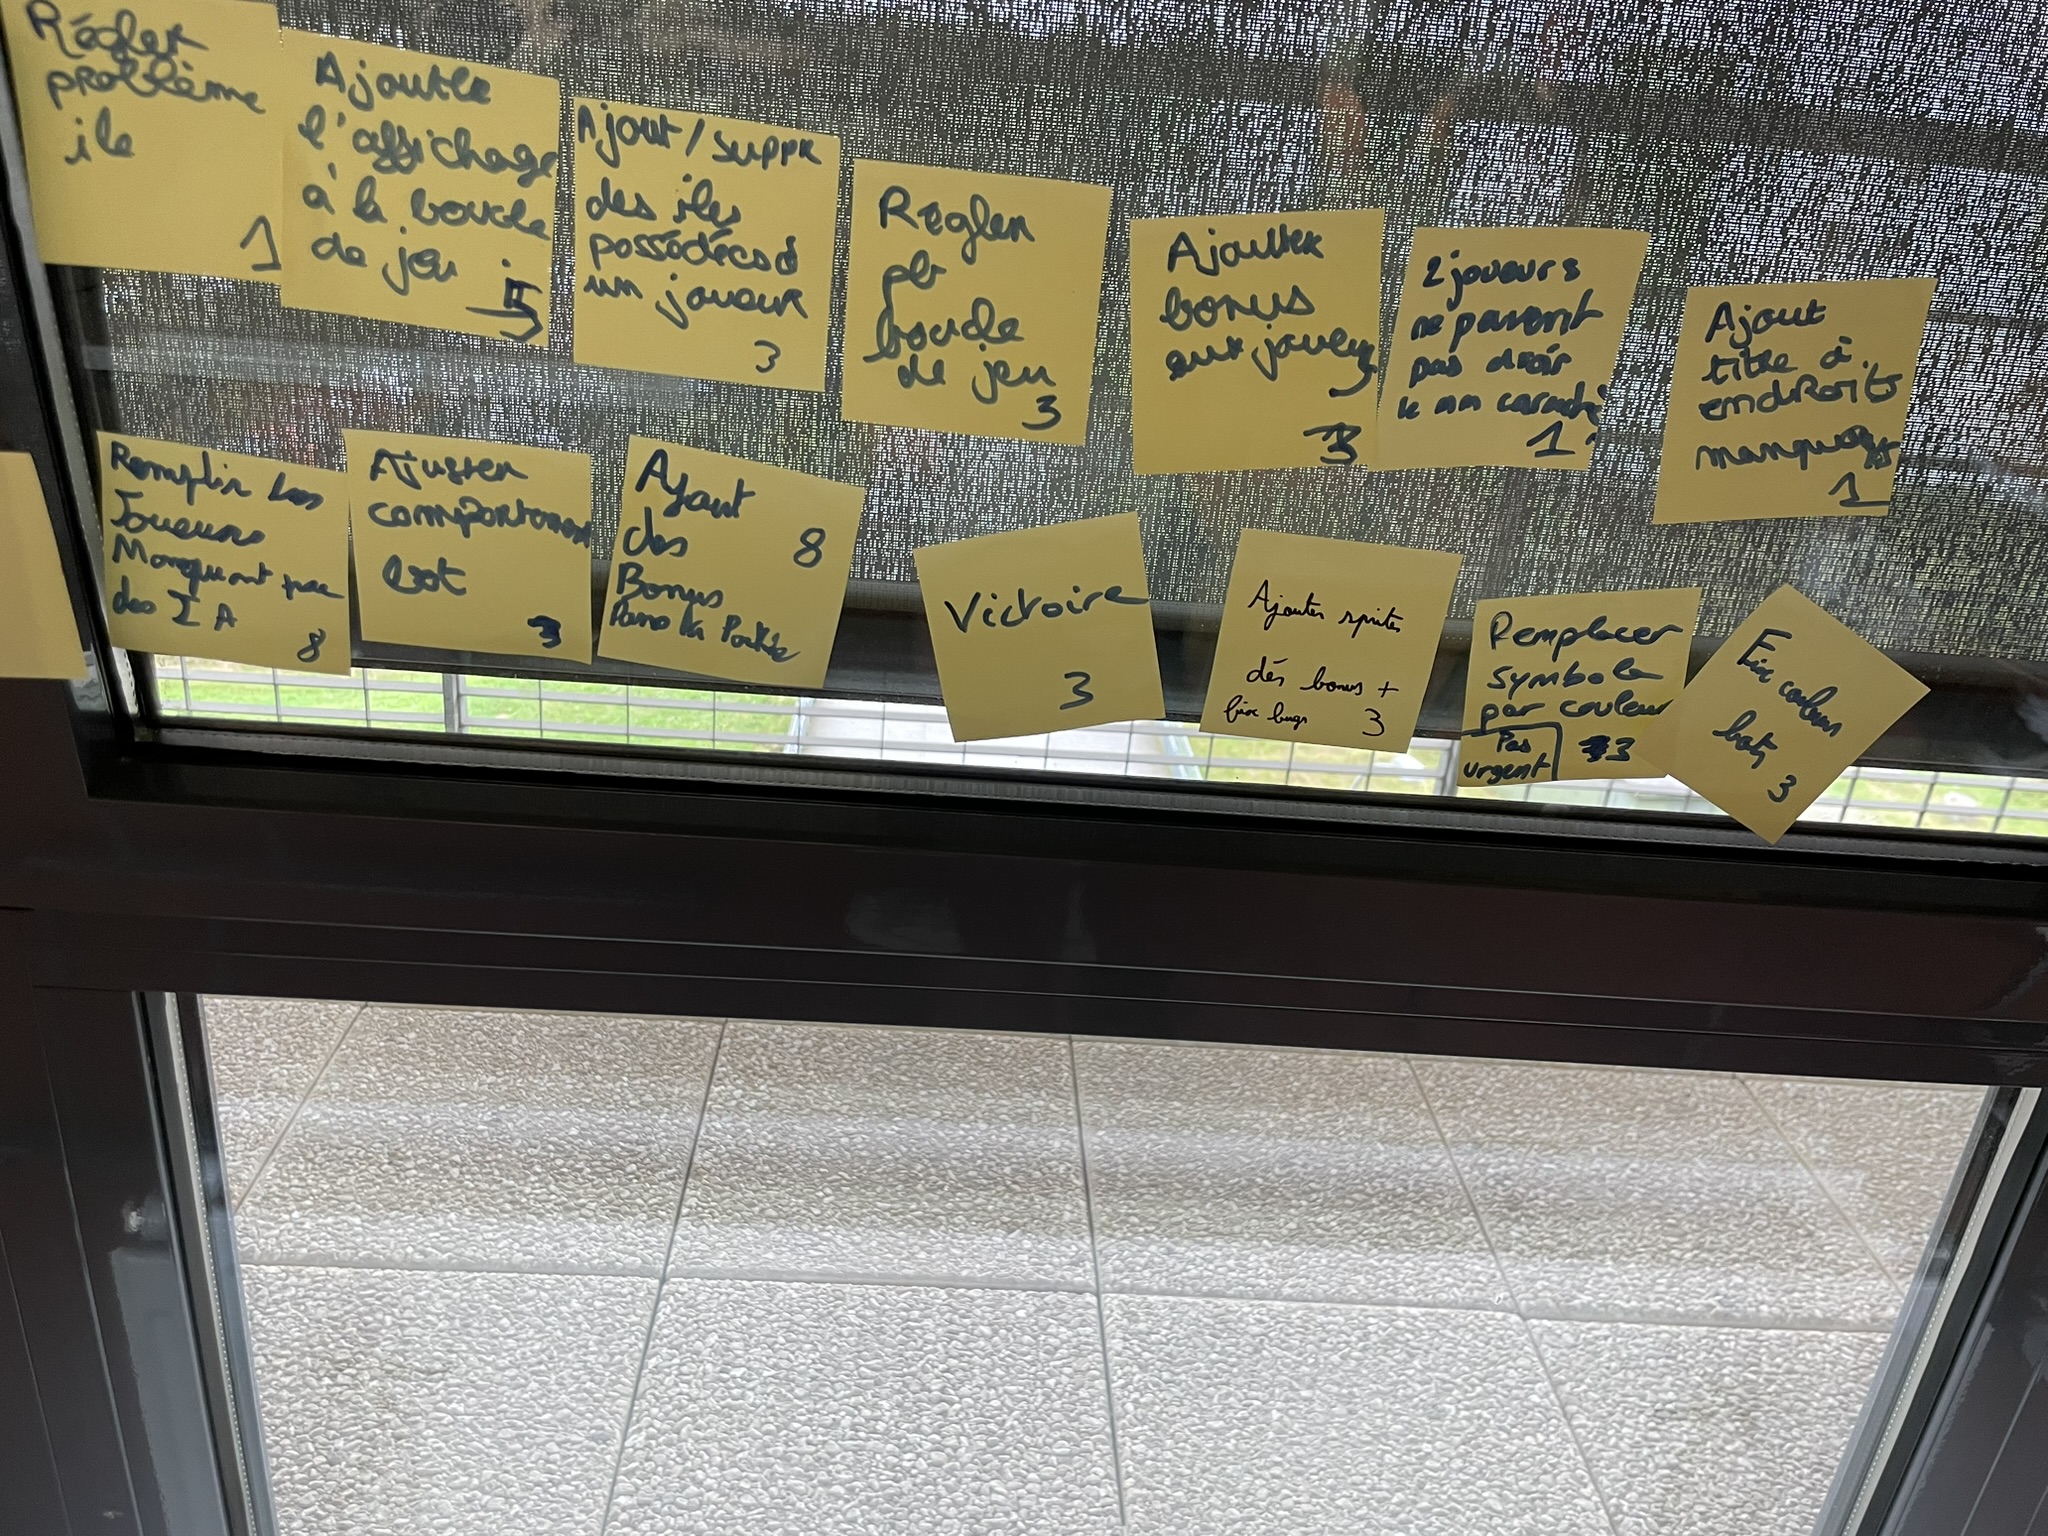 Régler
problème
ile
1
Ajouter
l'affichage
à la boucle
de jeu
5
Ajout/suppr
des iles
possédées à
un joueur
3
Régler
pb
boucle
de jeu
3
Ajouter
bonus
aux joueurs
3
2 joueurs
ne peuvent
pas avoir
le mm caractè
1
Ajout
titre à
endroits
manquants
1
Remplir les
Joueurs
Manquant par
des IA
8
Ajuster
comportement
bot
3
Ajout
des
8
Bonus
Dans la Partie
Victoire
3
Ajouter sprites
dés bonus +
fix bugs 3
Remplacer
symbole
par couleur
Pas
urgent
3
Fix couleur
bots
3